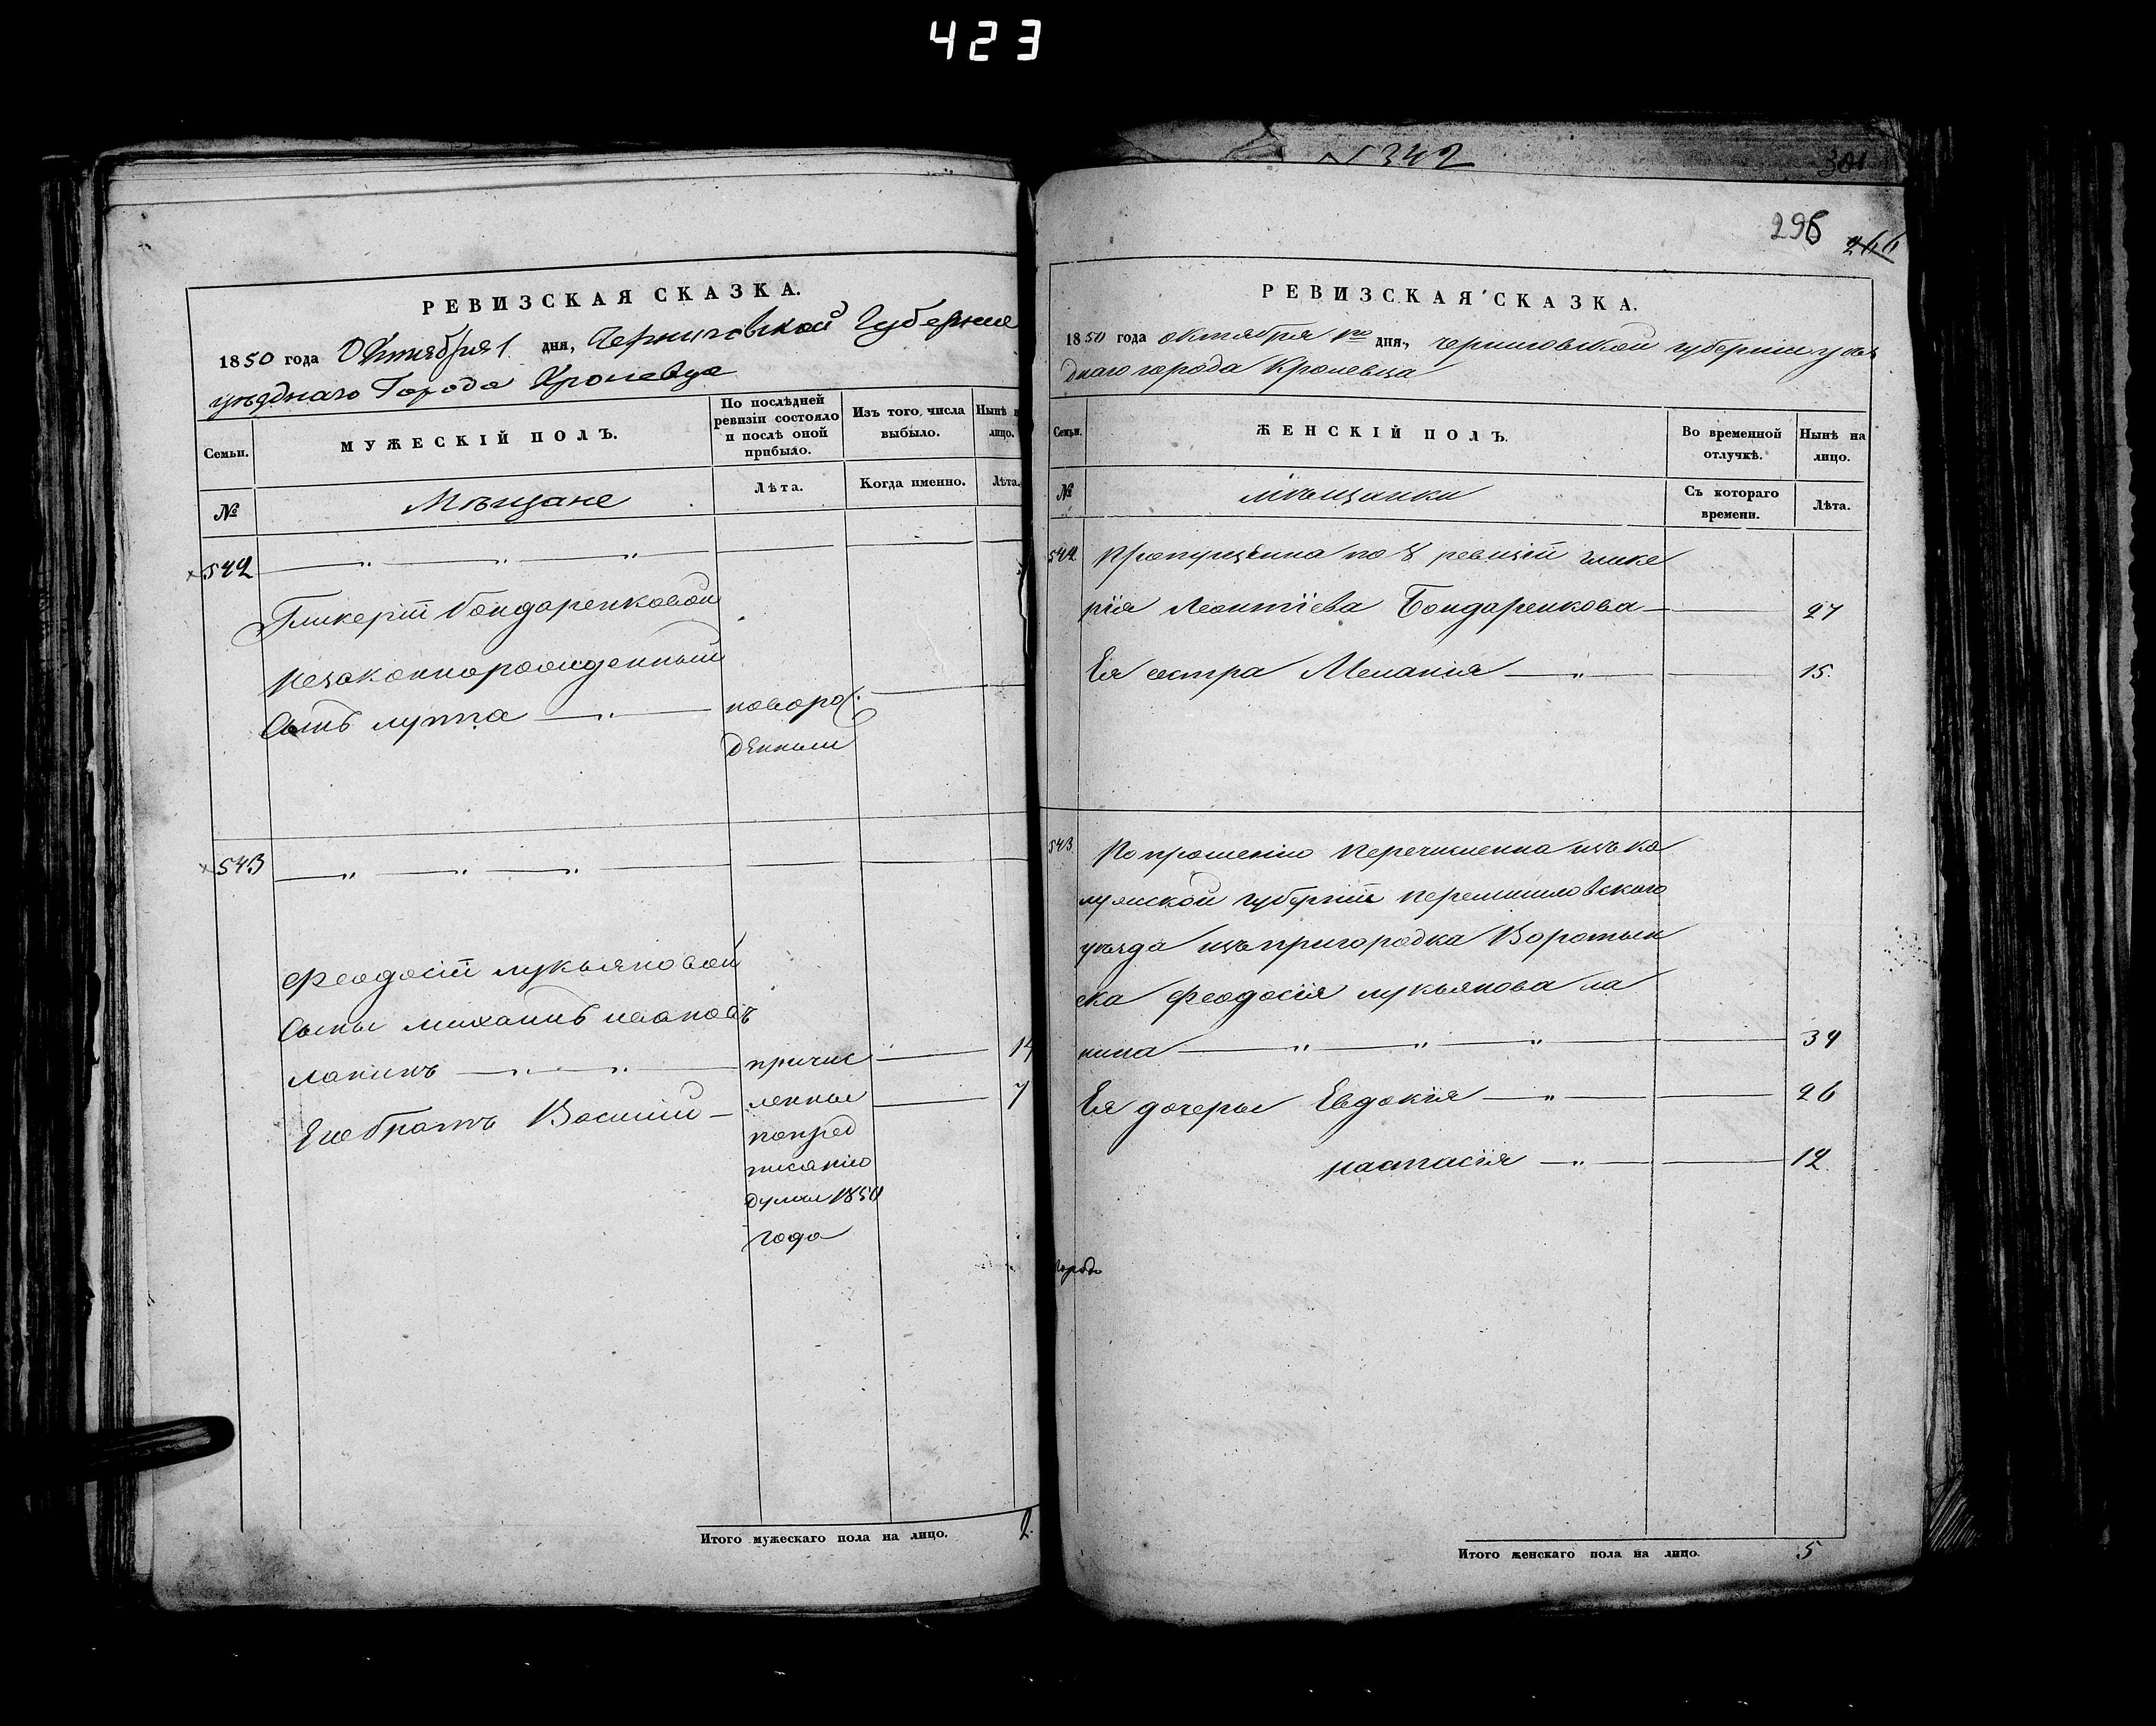 423
РЕВИЗСКАЯ СКАЗКА.
1850 года Октября 1 дня, Черниговской Губернии
уѣзднаго Города Кролевца
Семьи.
МУЖЕСКІЙ ПОЛЪ.
По послѣдней
ревизіи состояло
и послѣ оной
прибыло.
Изъ того числа
выбыло.
Нынѣ н
лицо.
№
Мѣщане
Лѣта.
Когда именно.
Лѣта.
542
Гликеріи Бондаренковой
незаконнорожденный
Сынъ луппа новорож
денный
543
Феодосіи лукьяновой
Сыны михаилъ ивановъ
лапинъ причис 14
ленные 7
Его братъ Василій
попред
писанію
думы 1850
года
Итого мужескаго пола на лицо. 2.
N 342
301
296 266
РЕВИЗСКАЯ СКАЗКА.
1850 года октября 1го дня, черниговской губерніи уѣз
днаго города Кролевца
Семьи.
ЖЕНСКІЙ ПОЛЪ.
Во временной
отлучкѣ.
Нынѣ на
лицо.
№
мѣщанки
Съ котораго
времени.
Лѣта.
542 Пропущенна по 8 ревизіи глике
рія Леонтіева Бондаренкова 27
Ея сестра Меланія 15.
543. По прошенію перечисленна изъ ка
лужской губерніи перемишловского
уѣзда изъ пригородка Воротын
ска феодосія лукьянова ла
пина 39
Ея дочеры Евдокія 26
настасія 12.
Итого женскаго пола на лицо. 5